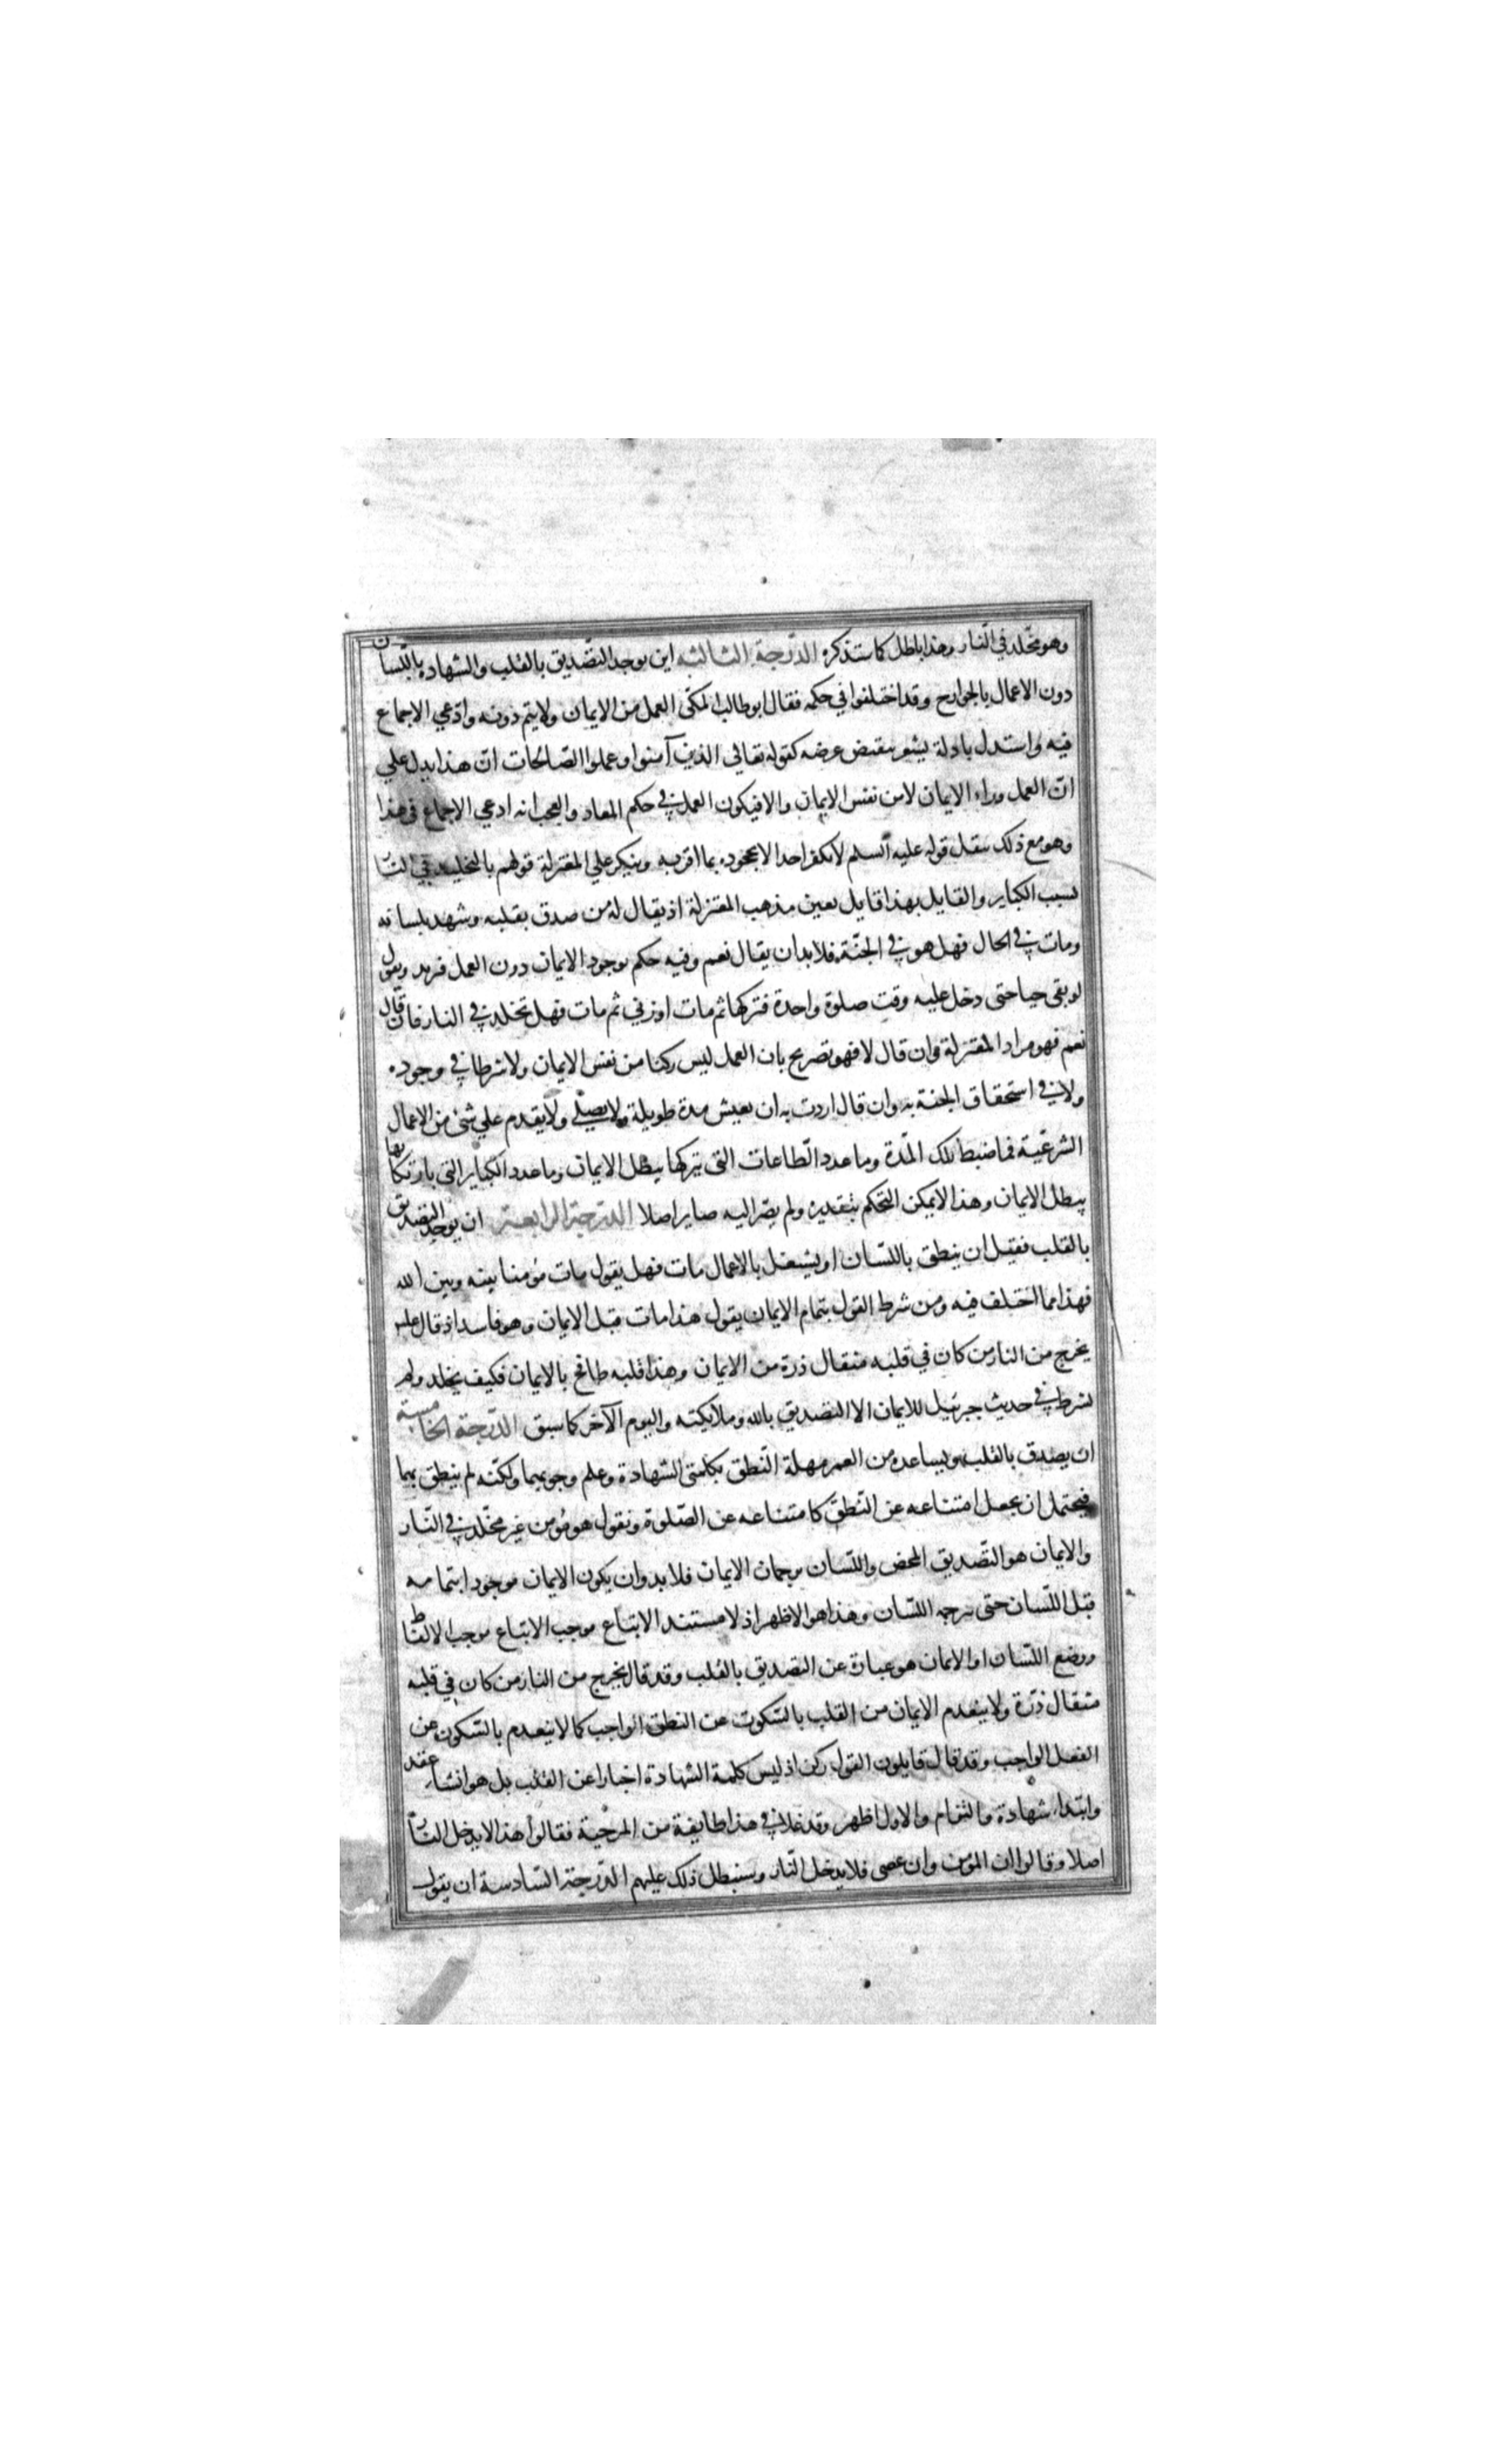 وهو مخلد في النار وهذا باطل كما ستذكره الدرجة الثالثه اين يوجد التصديق بالقلب والشهاده باللسان
دون الاعمال بالجوارح وقد اختلفوا في حكمه فقال ابو طالب المكي العمل من الايمان ولا يتم دونه وادعي الاجماع
فيه واستدل بادلة يشعر بنقيض غرضه كقوله تعالي الذين آمنوا وعملوا الصالحات ان هذا يدل علي
ان العمل وراء الايمان لا من نفس الايمان والا فيكون العمل في حكم المعاد والعجب انه ادعي الاجماع في هذا
وهو مع ذلك ينقل قوله عليه السلم لا يكفر احد الا بجحوده بما اقر به وينكر علي المعتزلة قولهم بالتخليد في النار
لسبب الكباير والقايل بهذا قايل بعين مذهب المعتزلة اذ يقال له من صدق بقلبه وشهد بلسانه
ومات في الحال فهل هو في الجنة فلابد ان يقال نعم وفيه حكم بوجود الايمان دون العمل فزيد ويقول
لو بقي حيا حتى دخل عليه وقت صلوة واحدة فتركها ثم مات او زني ثم مات فهل تخلد في النار فان قال
نعم فهو مراد المعتزلة وان قال لا فهو تصريح بان العمل ليس ركنا من نفس الايمان ولا شرطا في وجوده
ولا في استحقاق الجنة به وان قال اردت به ان يعيش مدة طويلة ولا يصلي ولا يقدم علي شئ من الاعمال
الشرعية فما ضبط تلك المدة وما عدد الطاعات التي بتركها يبطل الايمان وما عدد الكباير التي بارتكابها
يبطل الايمان وهذا لا يمكن التحكم بتقديره ولم يصر اليه صاير اصلا الدرجة الرابعة ان يوجد التصديق
بالقلب فقيل ان ينطق باللسان او يشتغل بالاعمال مات فهل يقول مات مؤمنا بينه وبين الله
فهذا مما اختلف فيه ومن شرط القول بتمام الايمان يقول هذا مات قبل الايمان وهو فاسد اذ قال عليه
يخرج من النار من كان في قلبه مثقال ذرة من الايمان وهذا قلبه طافح بالايمان فكيف يخلد ولم
يشرط في حديث جبرئيل للايمان الا التصديق بالله وملايكته واليوم الآخر كما سبق الدرجة الخامسة
ان يصدق بالقلب ويساعده من العمر مهلة النطق بكلمتي الشهادة وعلم وجوبهما ولكنه لم ينطق بهما
فيحتمل ان يجعل امتناعه عن النطق كامتناعه عن الصلوة ونقول هو مؤمن غير مخلد في النار
والايمان هو التصديق المحض واللسان ترجمان الايمان فلا بد وان يكون الايمان موجودا بتمامه
قبل اللسان حتى يترجمه اللسان وهذا هو الاظهر اذ لا مستند الا اتباع موجب الاتباع موجب الالفاظ
ووضع اللسان او الايمان هو عبارة عن التصديق بالقلب وقد قال يخرج من النار من كان في قلبه
مثقال ذرة ولا ينعدم الايمان من القلب بالسكوت عن النطق الواجب كما لا ينعدم بالسكوت عن
الفعل الواجب وقد قال قايلون القول ركن اذ ليس كلمة الشهادة اخبارا عن القلب بل هو انشاء عقد
وابتداء شهادة والتفام والاول اظهر وقد غلا في هذا طايفة من المرجئة فقالوا هذا لا يدخل النار
اصلا وقالوا ان المؤمن وان عصى فلا يدخل النار وسنبطل ذلك عليهم الدرجة السادسة ان يقول